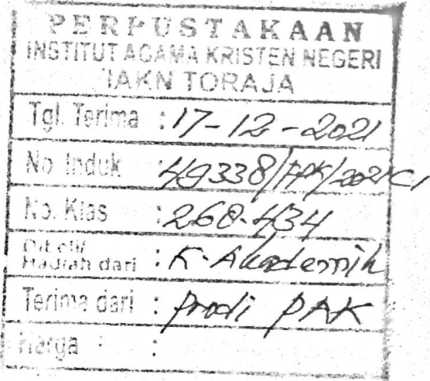 PERPUSTAKAAN
INSTITUT AGAMA KRISTEN NEGERI
IAKN TORAJA
Tgl. Terima : 17-12-2021
No. Induk : 49338/PAK/2021 C1
No. Klas : 268.434
Dibeli/
Hadiah dari : K. Akademik
Terima dari : prodi PAK
Harga :